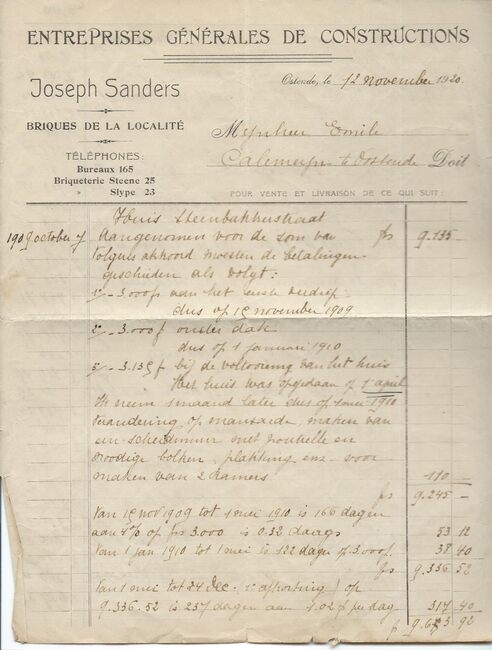 ENTREPRISES GÉNÉRALES DE CONSTRUCTIONS
Joseph Sanders
BRIQUES DE LA LOCALITÉ
TÉLÉPHONES:
Bureaux 165
Briqueterie Steene 25
» Slype 23
Ostende, le 12 november 1920.
Mynheer Emile
Calemeyn te Oostende Doit
POUR VENTE ET LIVRAISON DE CE QUI SUIT:
Huis Steenbakkerstraat
1909 october 7 Aangenomen voor de som van frs 9.135 —
volgens akkoord moesten de betalingen
geschieden als volgt:
1° — 3.000 fr aan het eerste verdiep
dus op 15 november 1909
2° — 3.000 f onder dak
dus op 1 januari 1910
3° — 3.135 f bij de voltooiing van het huis
Het huis was opgedaan op 1 april
Ik neem 1 maand later dus op 1 mei 1910
verandering op mansarde, maken van
een scheidmuur met
noodige balken, plakking enz. voor
maken van 2 kamers 110 —
frs 9.245 —
Van 15 nov 1909 tot 1 mei 1910 is 166 dagen
aan 4% op frs 3.000 is 0.32 daags 53 12
Van 1 jan 1910 tot 1 mei is 122 dagen op 3.000 f. 38 40
frs 9.336 52
Van 1 mei tot 24 dec. (1e afkorting) op
9.336.52 is 237 dagen aan 1.02 fr per dag 317 40
f 9.653 92